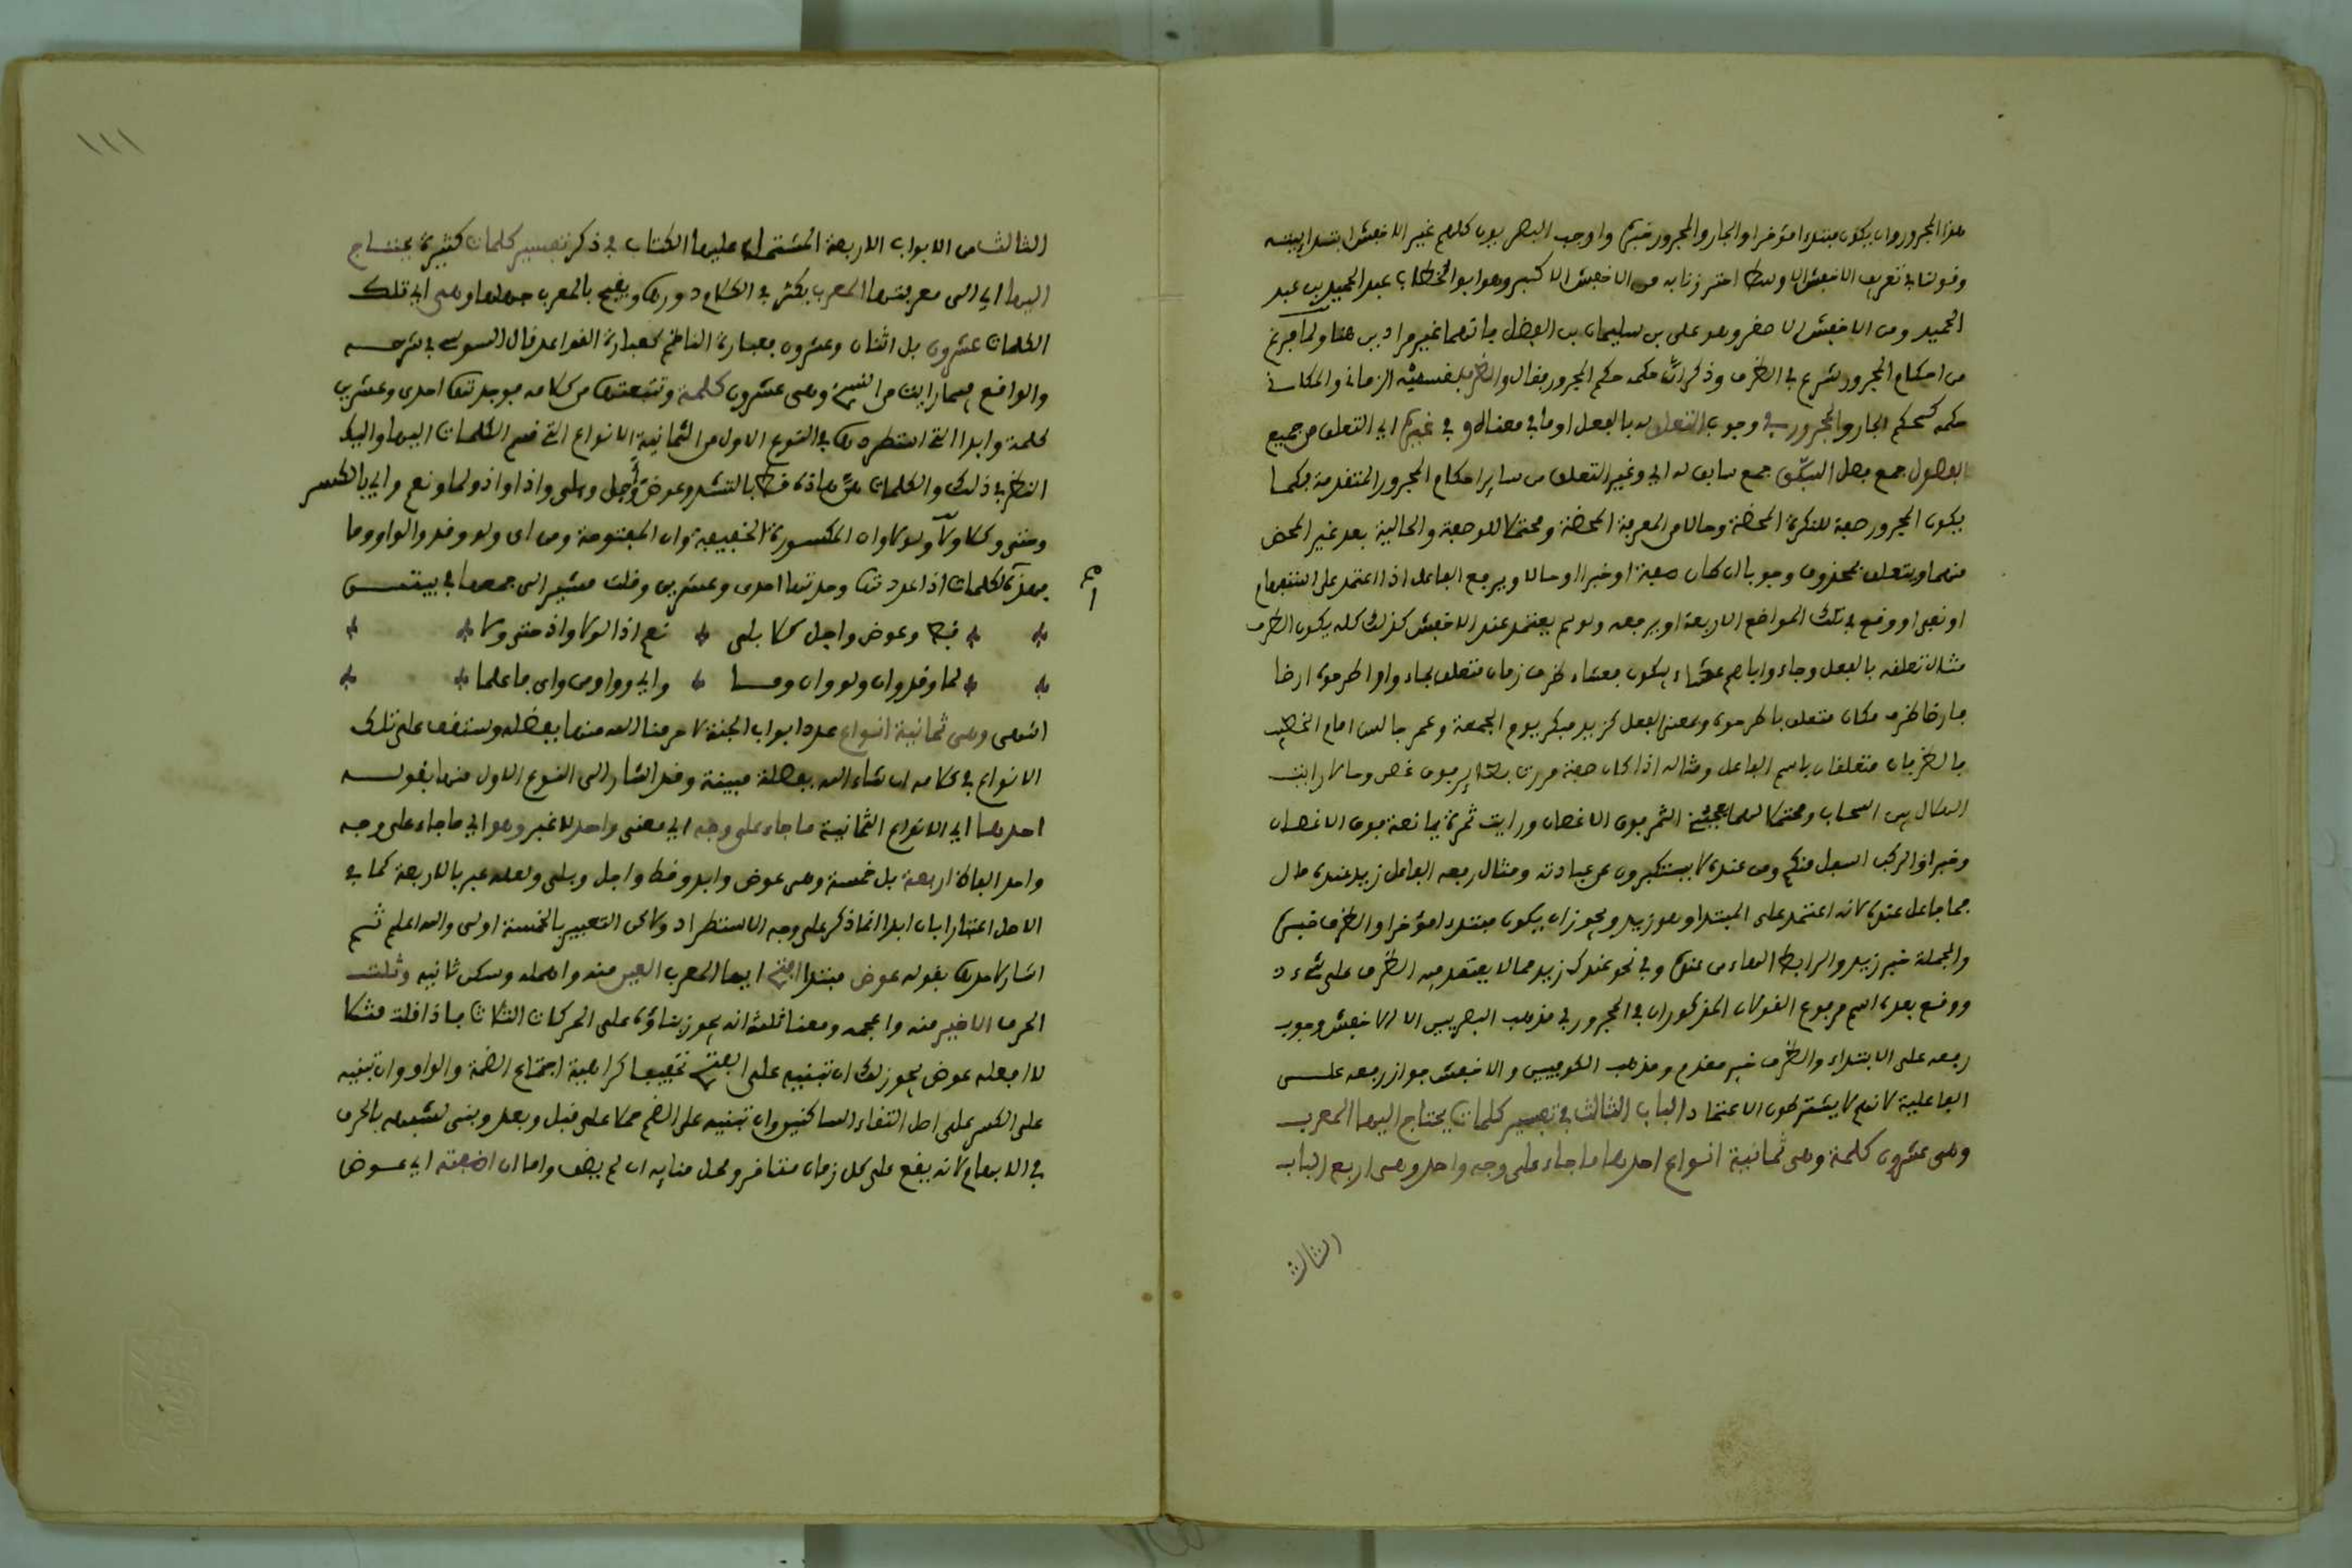 هذا المجرور وان يكون مبتدءا مؤخرا والجار والمجرور خبره واوجب البصريون كلهم غير الاخفش ابتدائيته
وقولنا في تعريف الاخفش الاوسط احترزنا به من الاخفش الاكبر وهو ابو الخطاب عبد الحميد بن عبد
الحميد ومن الاخفش الاصغر وهو على بن سليمان بن الفضل فانهما غير مرادين هنا ولما فرغ
من احكام المجرور شرع في الظرف وذكر ان حكمه حكم المجرور فقال والظرف بقسميه الزماني والمكاني
حكمه كحكم الجار والمجرور في وجوب التعلق له بالفعل او ما في معناه وفي غيره اي التعلق من جميع
الفصول جمع فصل السبّق جمع سابق له اي وغير التعلق من ساير احكام المجرور المتقدمة فكما
يكون المجرور صفة للنكرة المحضة وحالا من المعرفة المحضة ومحتملا للوصفة والحالية بعد غير المحض
منهما ويتعلق بمحذوف وجوبا ان كان صفة او خبرا او حالا ويرفع الفاعل اذا اعتمد على استفهام
او نفى او وقع في تلك المواضع الاربعة او يرفعه ولو لم يعتمد عند الاخفش كذلك كله يكون الظرف
مثال تعلقه بالفعل وجاءوا اباهم عشاء يبكون فعشاء ظرف زمان متعلق بجاء واو اطرحوه ارضا
فارضا ظرف مكان متعلق باطرحوه وبمعنى الفعل كزيد مبكر يوم الجمعة وعمر جالس امام الخطيب
فالظرفان متعلقان باسم الفاعل ومثاله اذا كان صفة مررت بطاير فوق غصن وحالا رايت
الهلال بين السحاب ومحتملا لهما يعجبني الثمر فوق الاغصان ورايت ثمرة يانعة فوق الاغصان
وخبرا والركب اسفل منكم ومن عنده لا يستكبرون عن عبادته ومثال رفعه الفاعل زيد عنده مال
فما فاعل عنده لانه اعتمد على المبتدا وهو زيد ويجوز ان يكون مبتدءا مؤخرا والظرف خبره
والجملة خبر زيد والرابط الهاء من عنده وفي نحو عندك زيد مما لا يعتمد فيه الظرف على شيء
ووقع بعده اسم مرفوع القولان المذكوران في المجرور في مذهب البصريين الا الاخفش وجوب
رفعه على الابتداء والظرف خبر مقدم ومذهب الكوفيين والاخفش جواز رفعه على
الفاعلية لانهم لا يشترطون الاعتماد الباب الثالث في تفسير كلمات يحتاج اليها المعرب
وهى عشرون كلمة وهى ثمانية انواع احدها ما جاء على وجه واحد وهى اربع الباب
الثالث
١١١
الثالث من الابواب الاربعة المشتمل عليها الكتاب في ذكر تفسير كلمات كثيرة يحتاج
اليها اي الى معرفتها المعرب بكثر في الكلام دورها ويقبح بالمعرب جهلها وهى اي تلك
الكلمات عشرون بل اثنان وعشرون فعبارة الناظم كعبارة القواعد قال السوسى في شرحه
والواقع فيما رايت من النسخ وهى عشرون كلمة وتتبعتها من كلامه فوجدتها احدى وعشرين
كلمة وابدا التى استطردها في النوع الاول من الثمانية الانواع التى قسم الكلمات اليها واليك
النظر في ذلك والكلمات هى هاذه قط بالتشد وعوض وأجل وبلى واذا واذ ولما ونعم واي بالكسر
وحتى وكلا ولا ولولا وان المكسورة الخفيفة وان المفتوحة ومن اى ولو وقد والواو وما
فهذه الكلمات اذا عددتها وجدتها احدى وعشرين وقلت مشيرا الى جمعها في بيتين
فقط وعوض واجل كلا بلى نعم اذا لولا واذ حتى ولا
لما وقد وان ولو وان وما واي وواو من واى فاعلما
انتهى وهى ثمانية انواع عدد ابواب الجنة لا حرمنا الله منها بفضله وستقف على تلك
الانواع في كلامه ان شاء الله بفصلة مبينة وقد اشار الى النوع الاول منها بقوله
احدها اي الانواع الثمانية ما جاء على وجه اي معنى واحد لا غير وهو اي ما جاء على وجه
واحد الفاظ اربعة بل خمسة وهى عوض وابد وقط واجل وبلى ولعله عبر بالاربعة كما في
الاصل اعتبارا بان ابدا انما ذكر على وجه الاستطراد ولاكن التعبير بالخمسة اولى والله اعلم ثم
اشار لاحدها بقوله عوض مبتدا افتح ايها المعرب العين منه واهمله وسكن ثانيه وثلث
الحرف الاخير منه واعجمه ومعنا ثلثه انه يجوز بناؤه على الحركات الثلاث فاذا قلت مثلا
لا افعله عوض يجوز لك ان تبنيه على الفتح تخفيفا كراهية اجتماع الضمة والواو وان تبنيه
على الكسر على اصل التقاء الساكنين وان تبنيه على الضم حملا على قبل وبعد وبنى لشبهه بالحرف
في الابهام لانه يقع على كل زمان متنافر ومحل بنايه ان لم يضف واما ان اضفته اي عوض